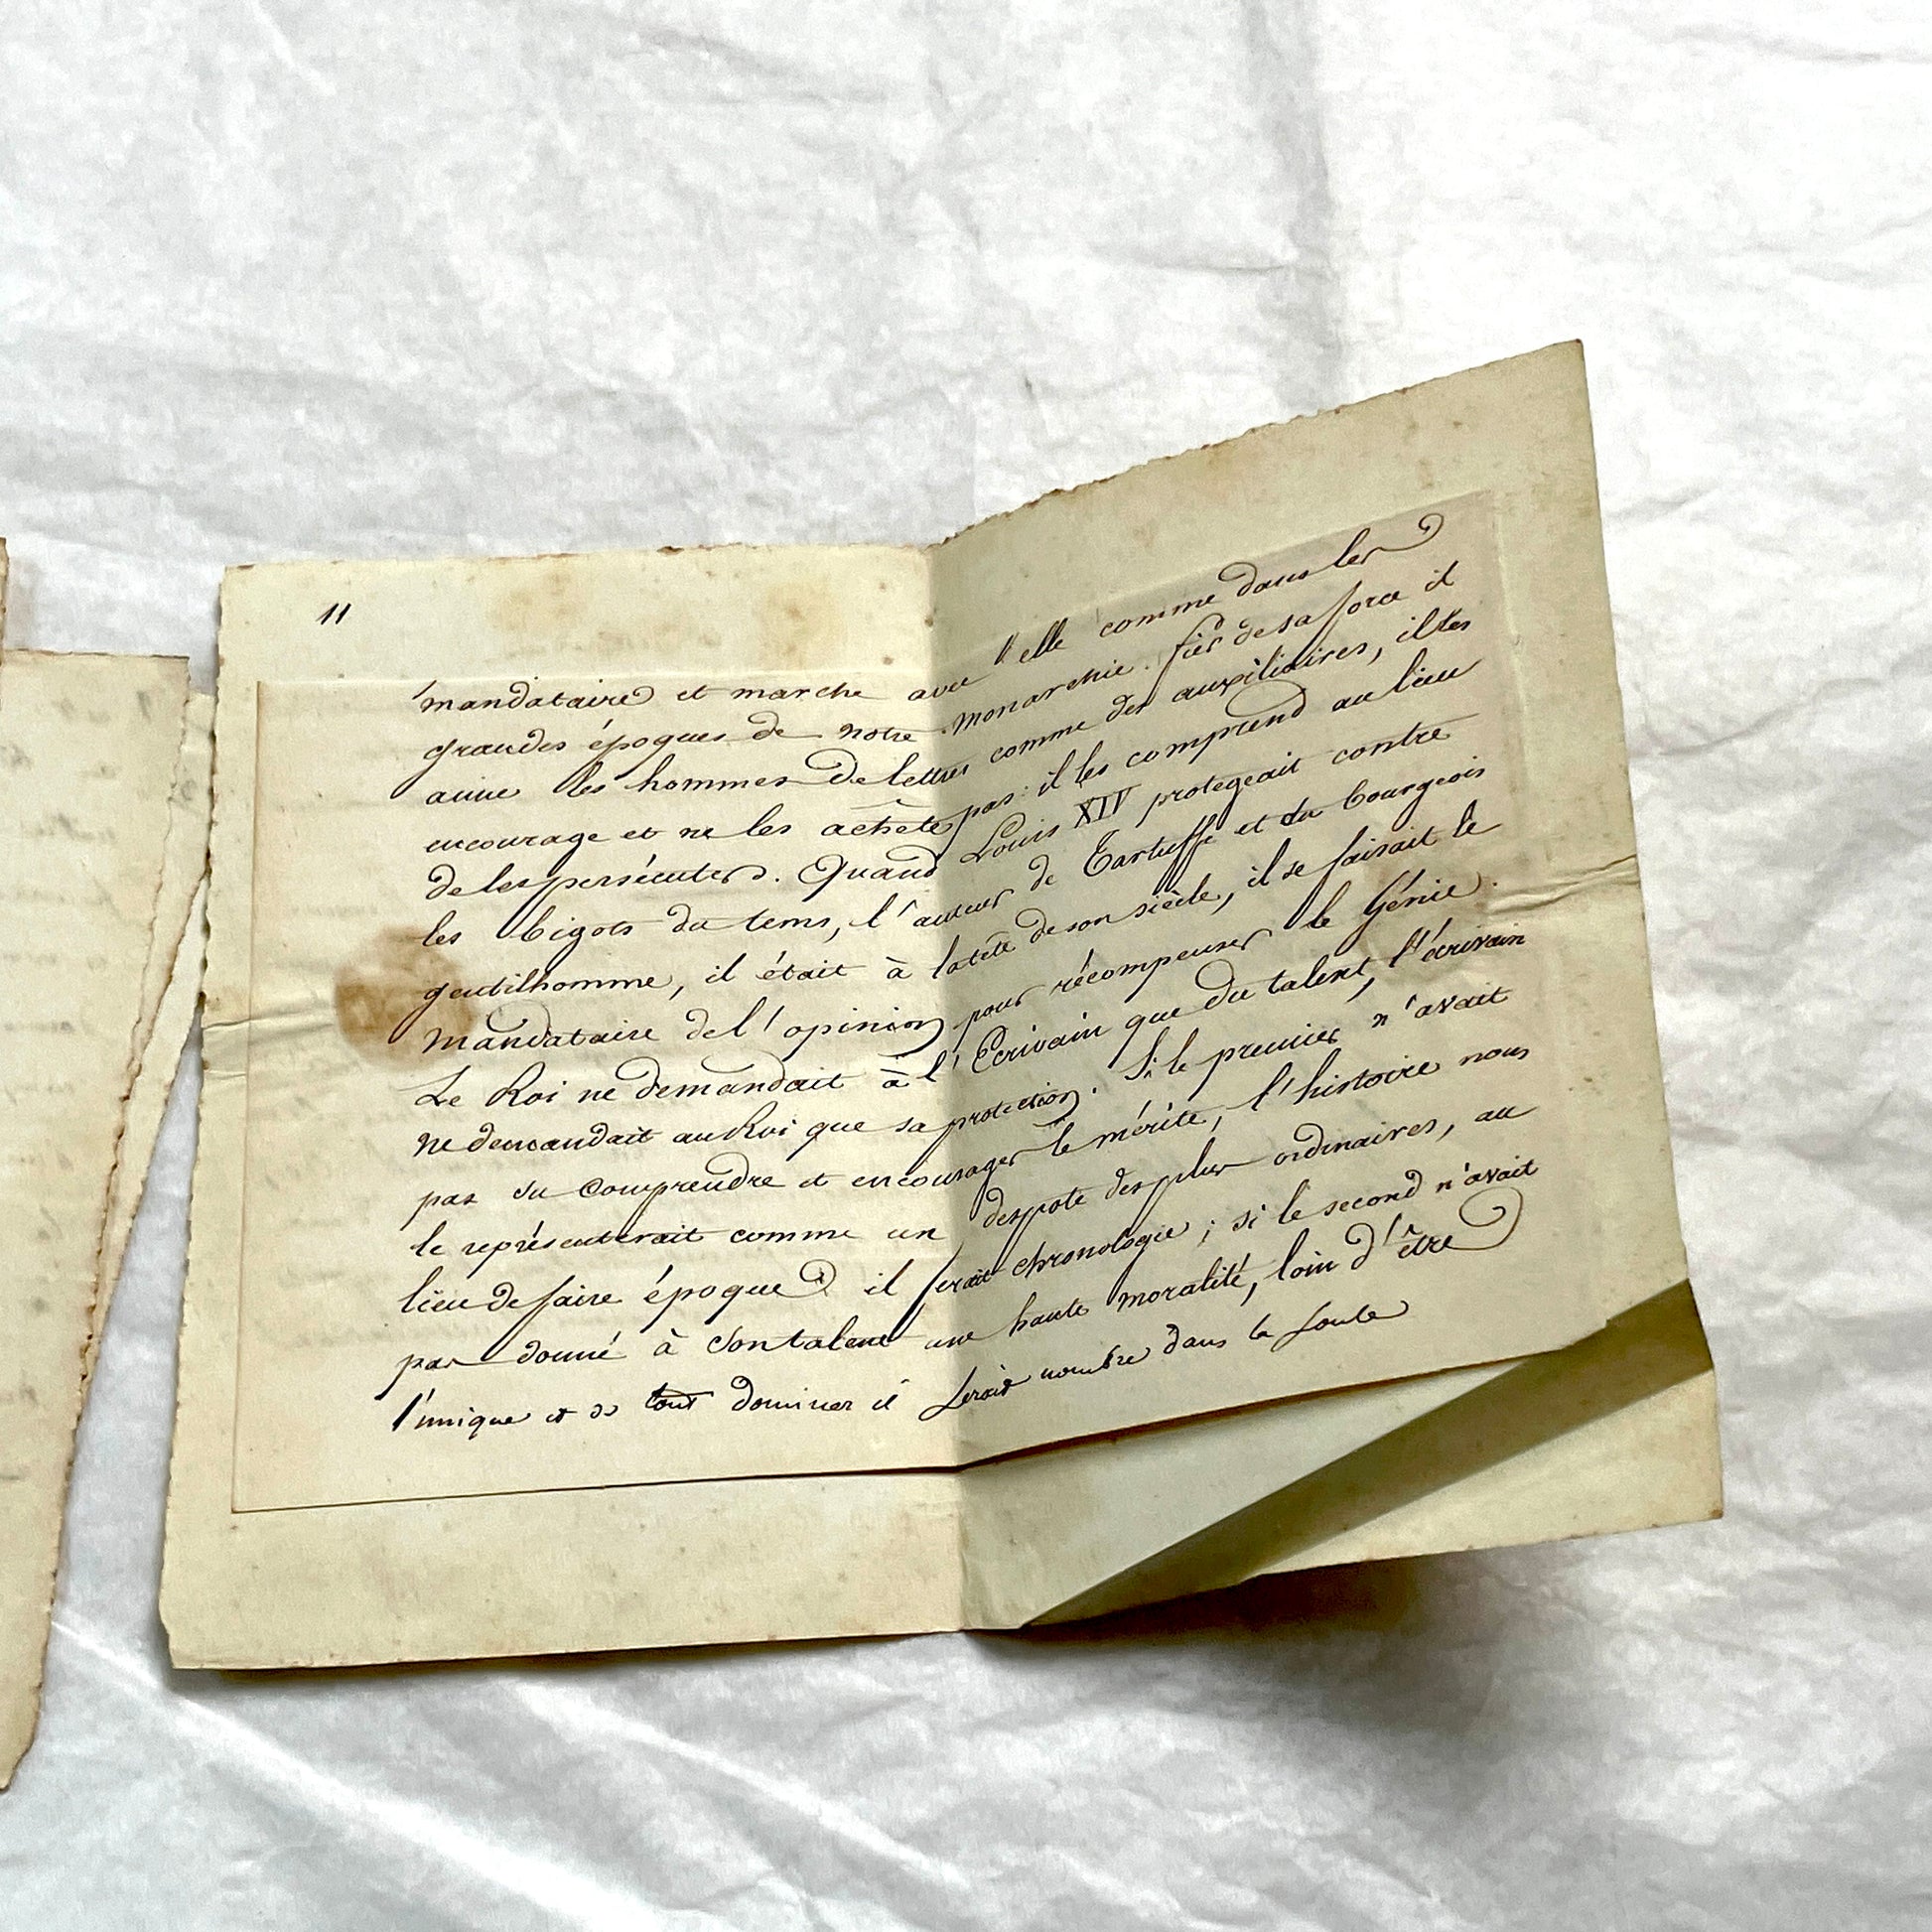 11
mandataire et marche avec elle comme dans les
grandes époques de notre monarchie. fier de sa force il
aime les hommes de lettres comme des auxiliaires, il les
encourage et ne les achète pas: il les comprend au lieu
de les persécuter. Quand Louis XIV protegeait contre
les bigots du tems, l'auteur de Tartuffe et du bourgeois
gentilhomme, il était à la tête de son siècle, il se faisait le
mandataire de l'opinion pour récompenser le Génie.
Le Roi ne demandait à l'Ecrivain que du talent, l'écrivain
ne demandait au Roi que sa protection. Si le premier n'avait
pas su comprendre et encourager le mérite, l'histoire nous
le représenterait comme un despote des plus ordinaires, au
lieu de faire époque il ferait chronologie; si le second n'avait
pas donné à son talent une haute moralité, loin d'être
l'unique et de tout dominer il ferait nombre dans la foule